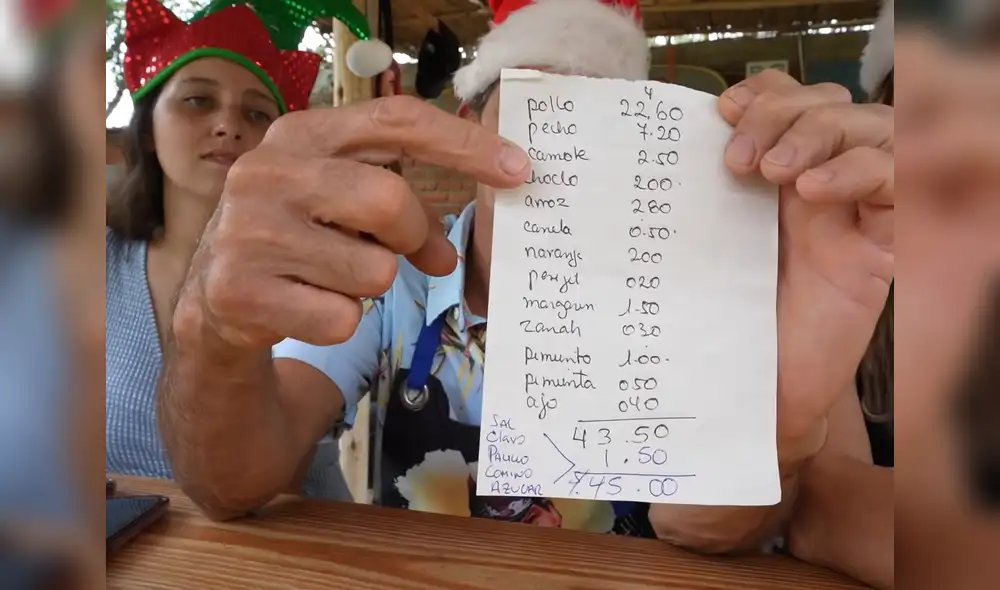 4
pollo 22.60
pecho 7.20
camote 2.50
choclo 200.
arroz 280
canela 0.50.
naranja 200
perejil 020
margarin 1.50
zanah 030
pimiento 1.00.
pimienta 050
ajo 040
43.50
SAL
Clavo 1.50
PALILLO
COMINO
AZUCAR 45.00